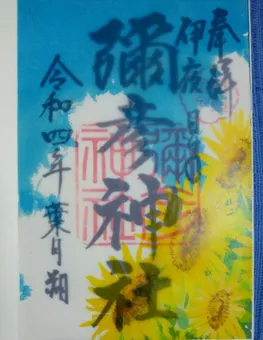 奉拝
伊夜日子
彌彦神社
令和四年葉月朔